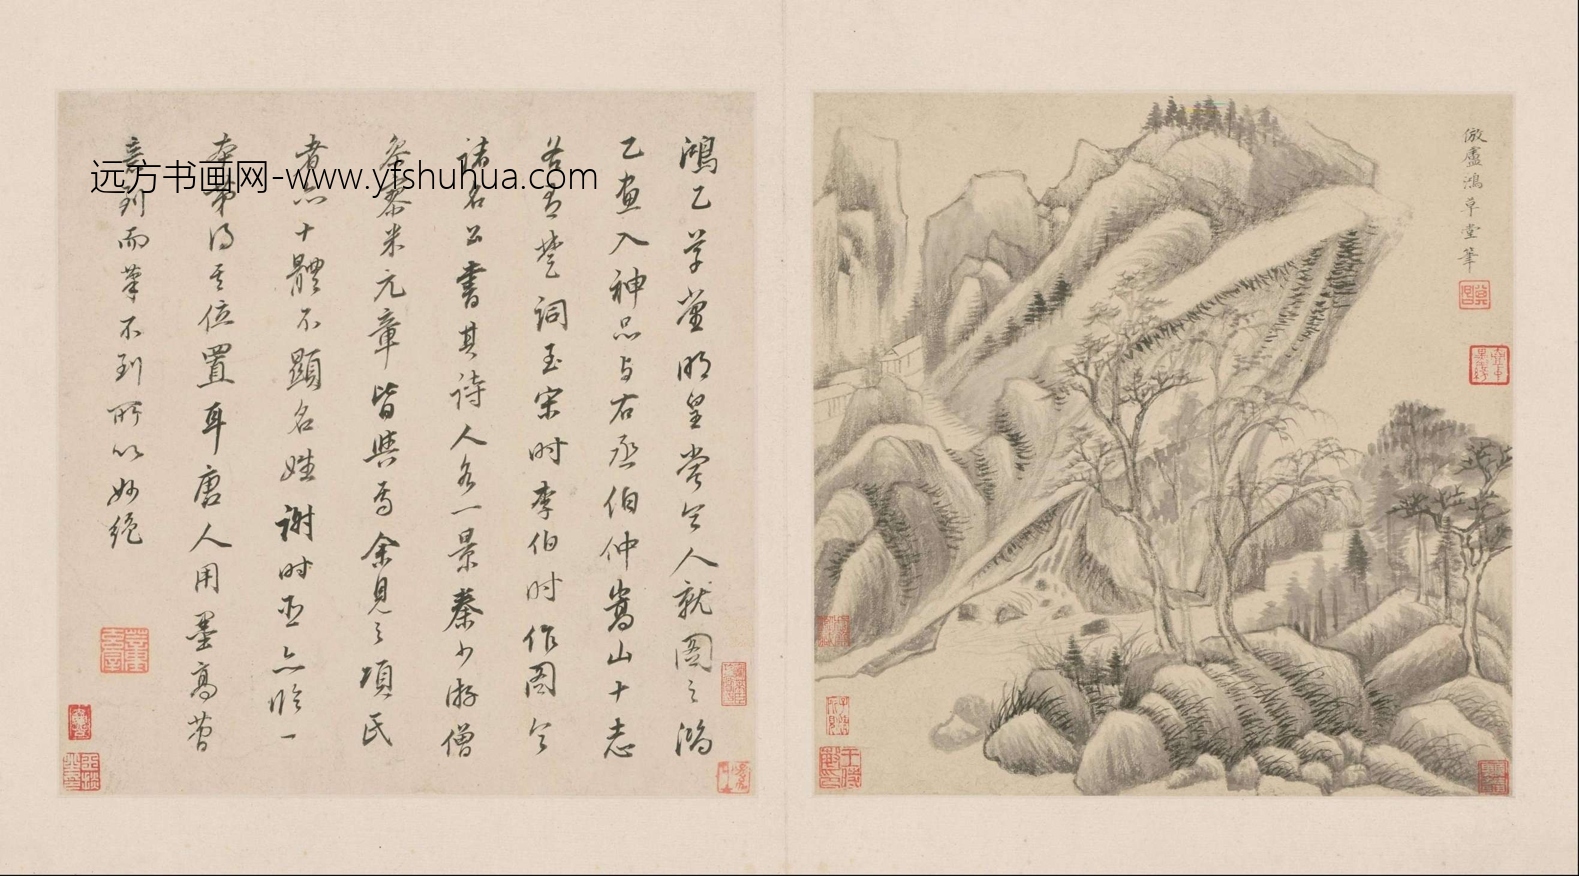 倣盧鴻草堂筆
鴻乙草堂明皇嘗令人就圖之鴻
乙畫入神品与右丞伯仲嵩山十志
若楚詞至宋时李伯时作图令
諸名公書其诗人各一景秦少游僧
参寥米元章皆與焉余見之項氏
者六十體不顯名姓謝时臣亦临一
本第得其位置耳唐人用墨高
意到而筆不到所以妙绝
远方书画网-www.yfshuhua.com